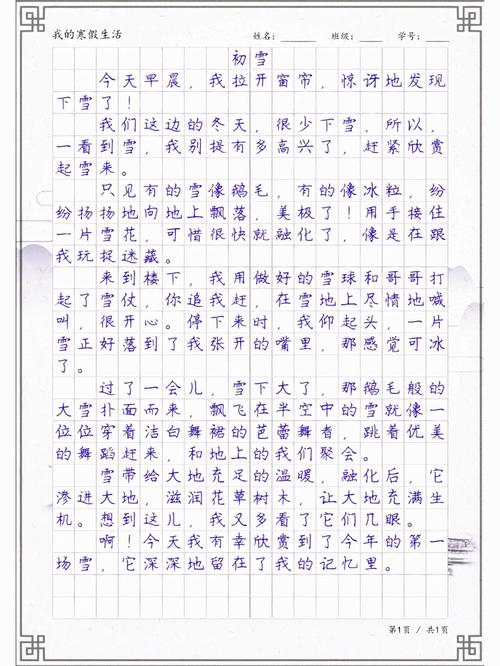 我的寒假生活 姓名: 班级: 学号:
初雪
今天早晨，我拉开窗帘，惊讶地发现
下雪了！
我们这边的冬天，很少下雪，所以，
一看到雪，我别提有多高兴了，赶紧欣赏
起雪来。
只见有的雪像鹅毛，有的像冰粒，纷
纷扬扬地向地上飘落，美极了！用手接住
一片雪花，可惜很快就融化了，像是在跟
我玩捉迷藏。
来到楼下，我用做好的雪球和哥哥打
起了雪仗，你追我赶，在雪地上尽情地喊
叫，很开心。停下来时，我仰起头，一片
雪正好落到了我张开的嘴里，那感觉可冰
了。
过了一会儿，雪下大了，那鹅毛般的
大雪扑面而来，飘飞在半空中的雪就像一
位位穿着洁白舞裙的芭蕾舞者，跳着优美
的舞蹈赶来，和地上的我们聚会。
雪带给大地充足的温暖，融化后，它
渗进大地，滋润花草树木，让大地充满生
机。想到这儿，我又多看了它们几眼。
啊！今天我有幸欣赏到了今年的第一
场雪，它深深地留在了我的记忆里。
第1页 / 共1页